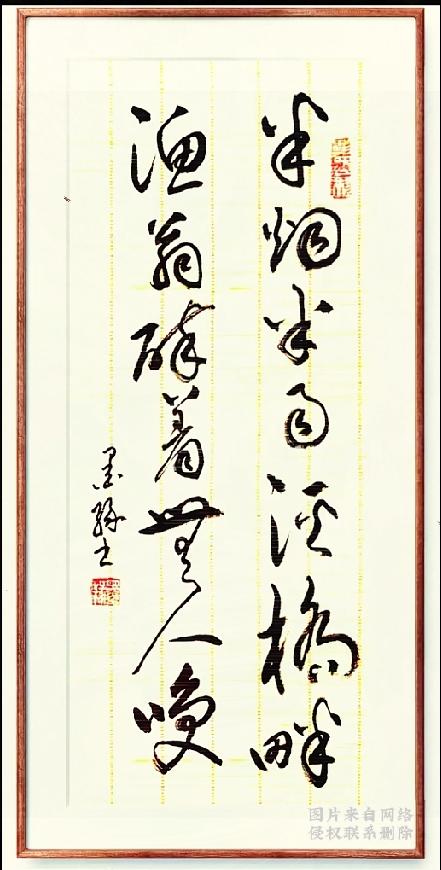 半烟半雨溪橋畔
渔翁醉着無人唤
图片来自网络
侵权联系删除